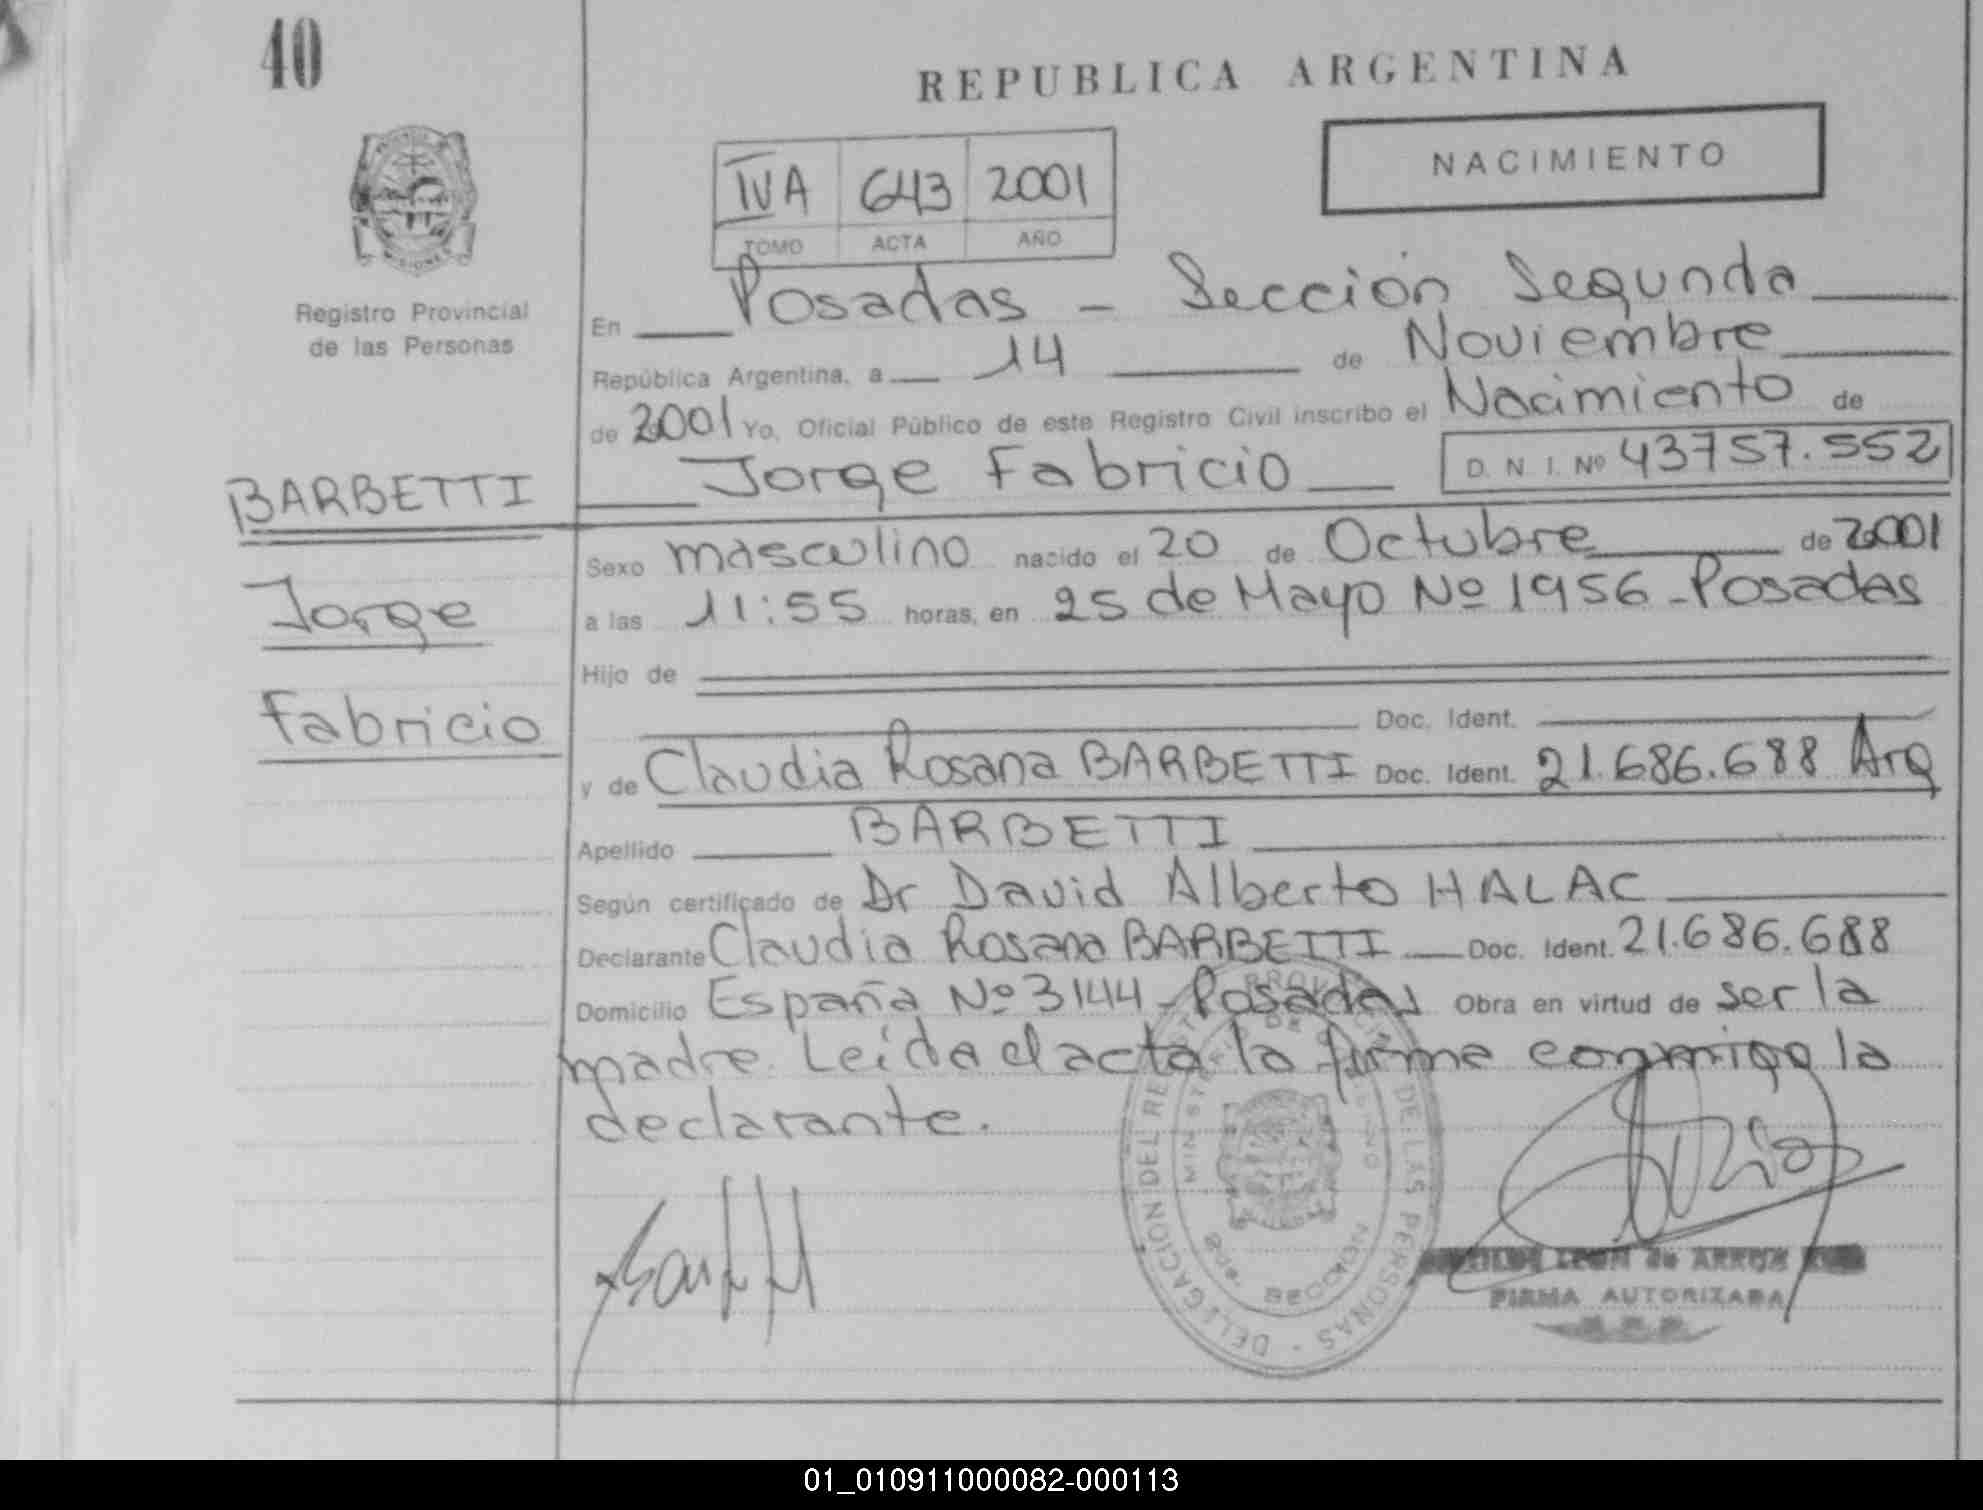 40
REPUBLICA ARGENTINA
NACIMIENTO
IVA 643 2001
TOMO ACTA AÑO
MISIONES
Registro Provincial
de las Personas
En Posadas - Sección Segunda
República Argentina, a 14 de Noviembre
de 2001 Yo, Oficial Público de este Registro Civil inscribo el Nacimiento de
Jorge Fabricio D. N. I. Nº 43757.552
BARBETTI
Jorge
Fabricio
Sexo masculino nacido el 20 de Octubre de 2001
a las 11:55 horas, en 25 de Mayo Nº 1956 - Posadas
Hijo de
Doc. Ident.
y de Claudia Rosana BARBETTI Doc. Ident. 21.686.688 Arg
Apellido BARBETTI
Según certificado de Dr David Alberto HALAC
Declarante Claudia Rosana BARBETTI Doc. Ident. 21.686.688
Domicilio España Nº 3144 - Posadas Obra en virtud de ser la
madre. Leída el acta la firma conmigo la
declarante.
DELEGACION DEL REGISTRO PROVINCIAL DE LAS PERSONAS
SECCION
LEON de ARRUA
FIRMA AUTORIZADA
01_010911000082-000113